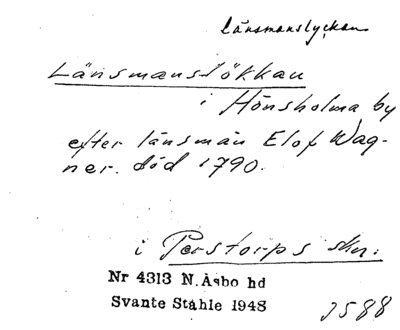 länsmanslyckan
Länsmanslökkau
i Hönsholma by
efter länsmän Elof Wag-
ner. död 1790.
i Perstorps skn:
Nr 4313 N. Åsbo hd
Svante Ståhle 1948
3588